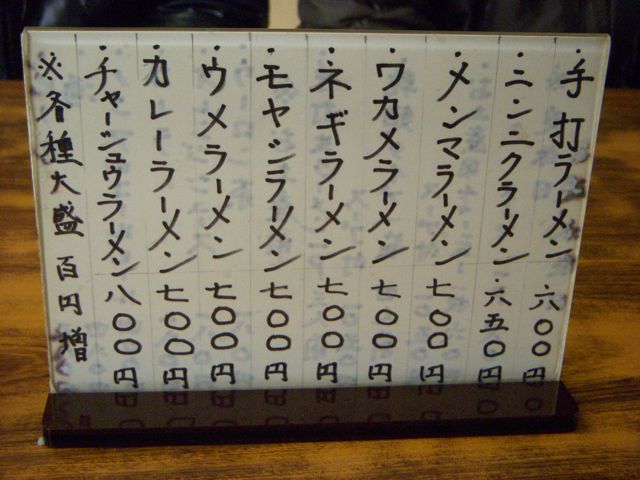 ・手打ラーメン 六〇〇円
・ニンニクラーメン 六五〇円
・メンマラーメン 七〇〇円
・ワカメラーメン 七〇〇円
・ネギラーメン 七〇〇円
・モヤシラーメン 七〇〇円
・ウメラーメン 七〇〇円
・カレーラーメン 七〇〇円
・チャーシュウラーメン 八〇〇円
※各種大盛 百円増